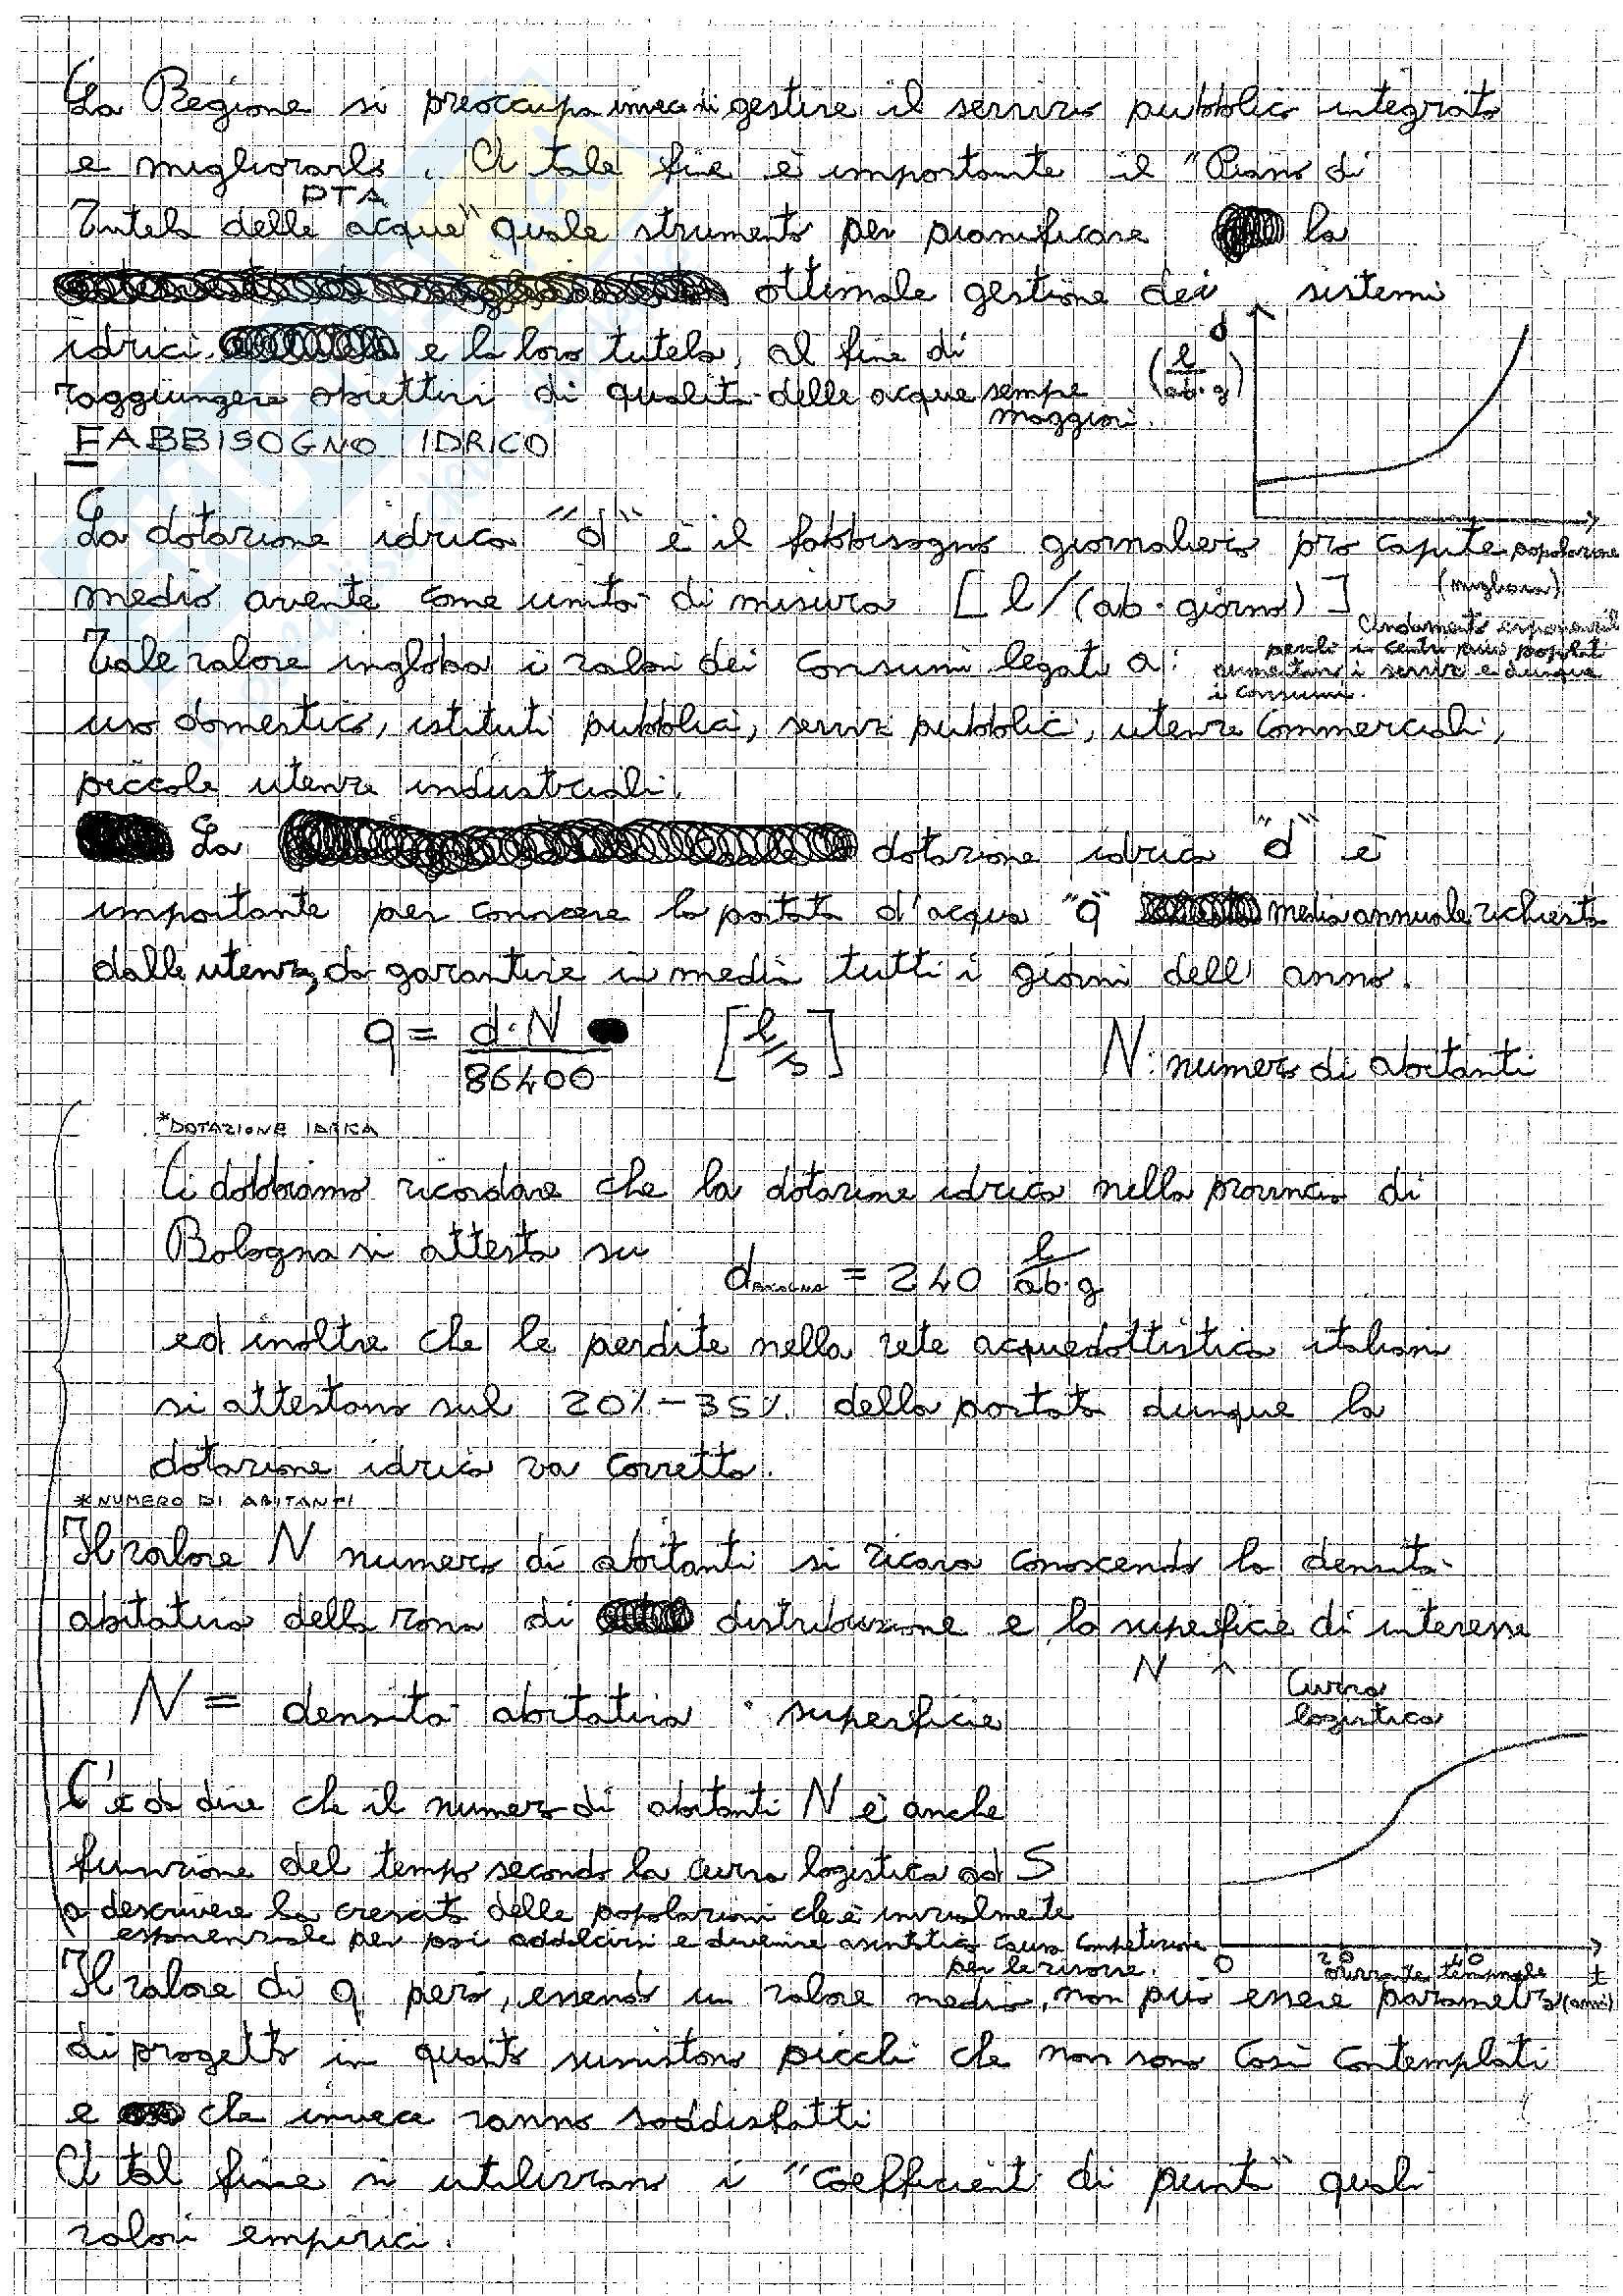 La Regione si preoccupa invece di gestire il servizio pubblico integrato
e migliorarlo. A tale fine è importante il "Piano di
PTA
Tutela delle acque" quale strumento per pianificare la
ottimale gestione dei sistemi
idrici e la loro tutela, al fine di
raggiungere obiettivi di qualità delle acque sempre
maggiori.
d
(l/ab·g)
FABBISOGNO IDRICO
La dotazione idrica "d" è il fabbisogno giornaliero pro capite
popolazione
(migliaia)
medio avente come unità di misura [l/(ab·giorno)]
Andamento esponenziale
perché in centri più popolati
aumentano i servizi e dunque
i consumi.
Tale valore ingloba i valori dei consumi legati a:
uso domestico, istituti pubblici, servizi pubblici, utenze commerciali,
piccole utenze industriali.
La dotazione idrica "d" è
importante per conoscere la portata d'acqua "q" media annuale richiesta
dalle utenze, da garantire in media tutti i giorni dell'anno.
q = d·N / 86400 [l/s] N: numero di abitanti
*DOTAZIONE IDRICA
Ci dobbiamo ricordare che la dotazione idrica nella provincia di
Bologna si attesta su
d BOLOGNA = 240 l/ab·g
ed inoltre che le perdite nella rete acquedottistica italiana
si attestano sul 20%-35% della portata dunque la
dotazione idrica va corretta.
*NUMERO DI ABITANTI
Il valore N numero di abitanti si ricava conoscendo la densità
abitativa della zona di distribuzione e la superficie di interesse
N = densità abitativa · superficie
N
Curva
logistica
C'è da dire che il numero di abitanti N è anche
funzione del tempo secondo la curva logistica ad S
a descrivere la crescita delle popolazioni che è inizialmente
esponenziale per poi addolcirsi e divenire asintotica causa competizione
per le risorse.
0 20 40
orizzonte temporale t
(anni)
Il valore di q però, essendo un valore medio, non può essere parametro
di progetto in quanto sussistono picchi che non sono così contemplati
e che invece vanno soddisfatti
A tal fine si utilizzano i "coefficienti di punta" quali
valori empirici.